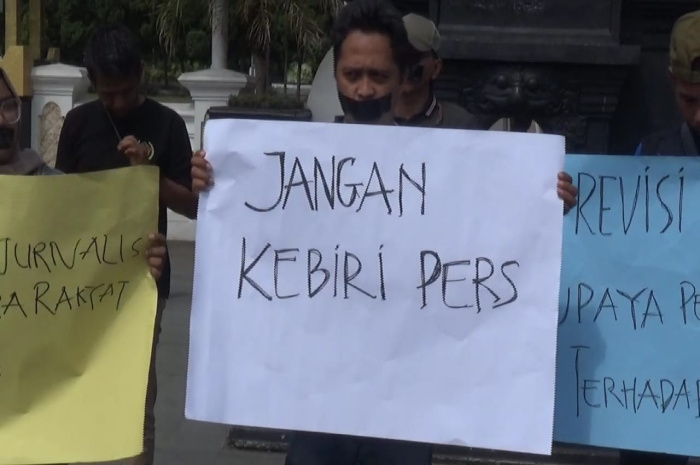 JURNALIS
RAKYAT
JANGAN
KEBIRI PERS
REVISI
UPAYA
TERHADAP